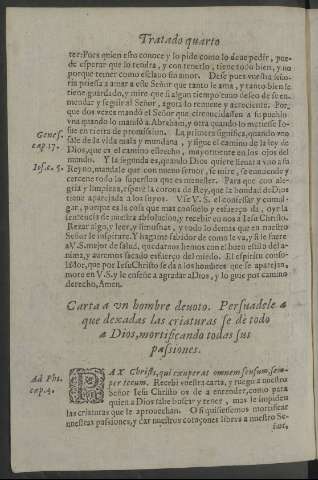 Tratado quarto
ter: Pues quien esto conoce y lo pide como lo deue pedir, pue-
de esperar que lo tendra, y con tenerlo, tiene todo bien, y no
porque temer como esclauo sin amor. Dese pues vuestra seño-
ria priessa a amar a este Señor que tanto le ama, y tan bien le
tiene guardado, y mire que si algun tiempo tuuo desseo de se en-
mendar y seguir al Señor, agora lo renueue y acreciente. Por-
que dos vezes mandò el Señor que circuncidassen a su pueblo.
vna quando lo mandò a Abraham, y otra quando lo metiesse Io-
Genes.
sue en tierra de promission. La primera significa, quando vno
cap. 17.
sale de la vida mala y mundana, y sigue el camino de la ley de
Dios, que es el camino estrecho, mayormente en los ojos del
mundo. Y la segunda es, quando Dios quiere lleuar a vno a su
Ios. c. 5.
Reyno, mandale que con nueuo feruor, se mire, se enmiende y
cercene todo lo superfluo que es menester. Para que con ale-
gria y limpieza, espere la corona de Rey, que la bondad de Dios
tiene aparejada a los suyos. V se V. S. el confessar y comul-
gar, porque es la cosa que mas consuelo y esfuerço da, oyr la
sentencia de nuestra absolucion, y recebir en nos a Iesu Christo.
Rezar algo, y leer, y y todo lo demas que en nuestro
Señor le inspirare. Y hagame sabidor de como le va, y si le fuere
a V. S. mejor de salud, quedarnos hemos con el buen estilo del a-
nima, y auremos sacado esfuerço del miedo. El espiritu conso-
lador, que por Iesu Christo se da a los hombres que se aparejan,
more en V. S. y le enseñe a agradar a Dios, y lo guie por camino
derecho, Amen.
Carta a vn hombre deuoto. Persuadele a
que dexadas las criaturas se dè todo
a Dios, mortificando todas sus
passiones.
Ad Phi.
cap. 4.
PAX Christi, qui exuperat omnem sensum, sem-
per tecum. Recebi vuestra carta, y ruego a nuestro
Señor Iesu Christo os de a entender, como para
quien a Dios sabe buscar y tener, mas le impiden
las criaturas que le aprouechan. O si quisiessemos mortificar
nuestras passiones, y dar nuestros coraçones libres a nuestro Se-
ñor,